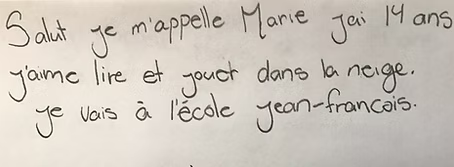 Salut je m'appelle Marie jai 14 ans
j'aime lire et jouer dans la neige.
je vais à l'école jean-francois.